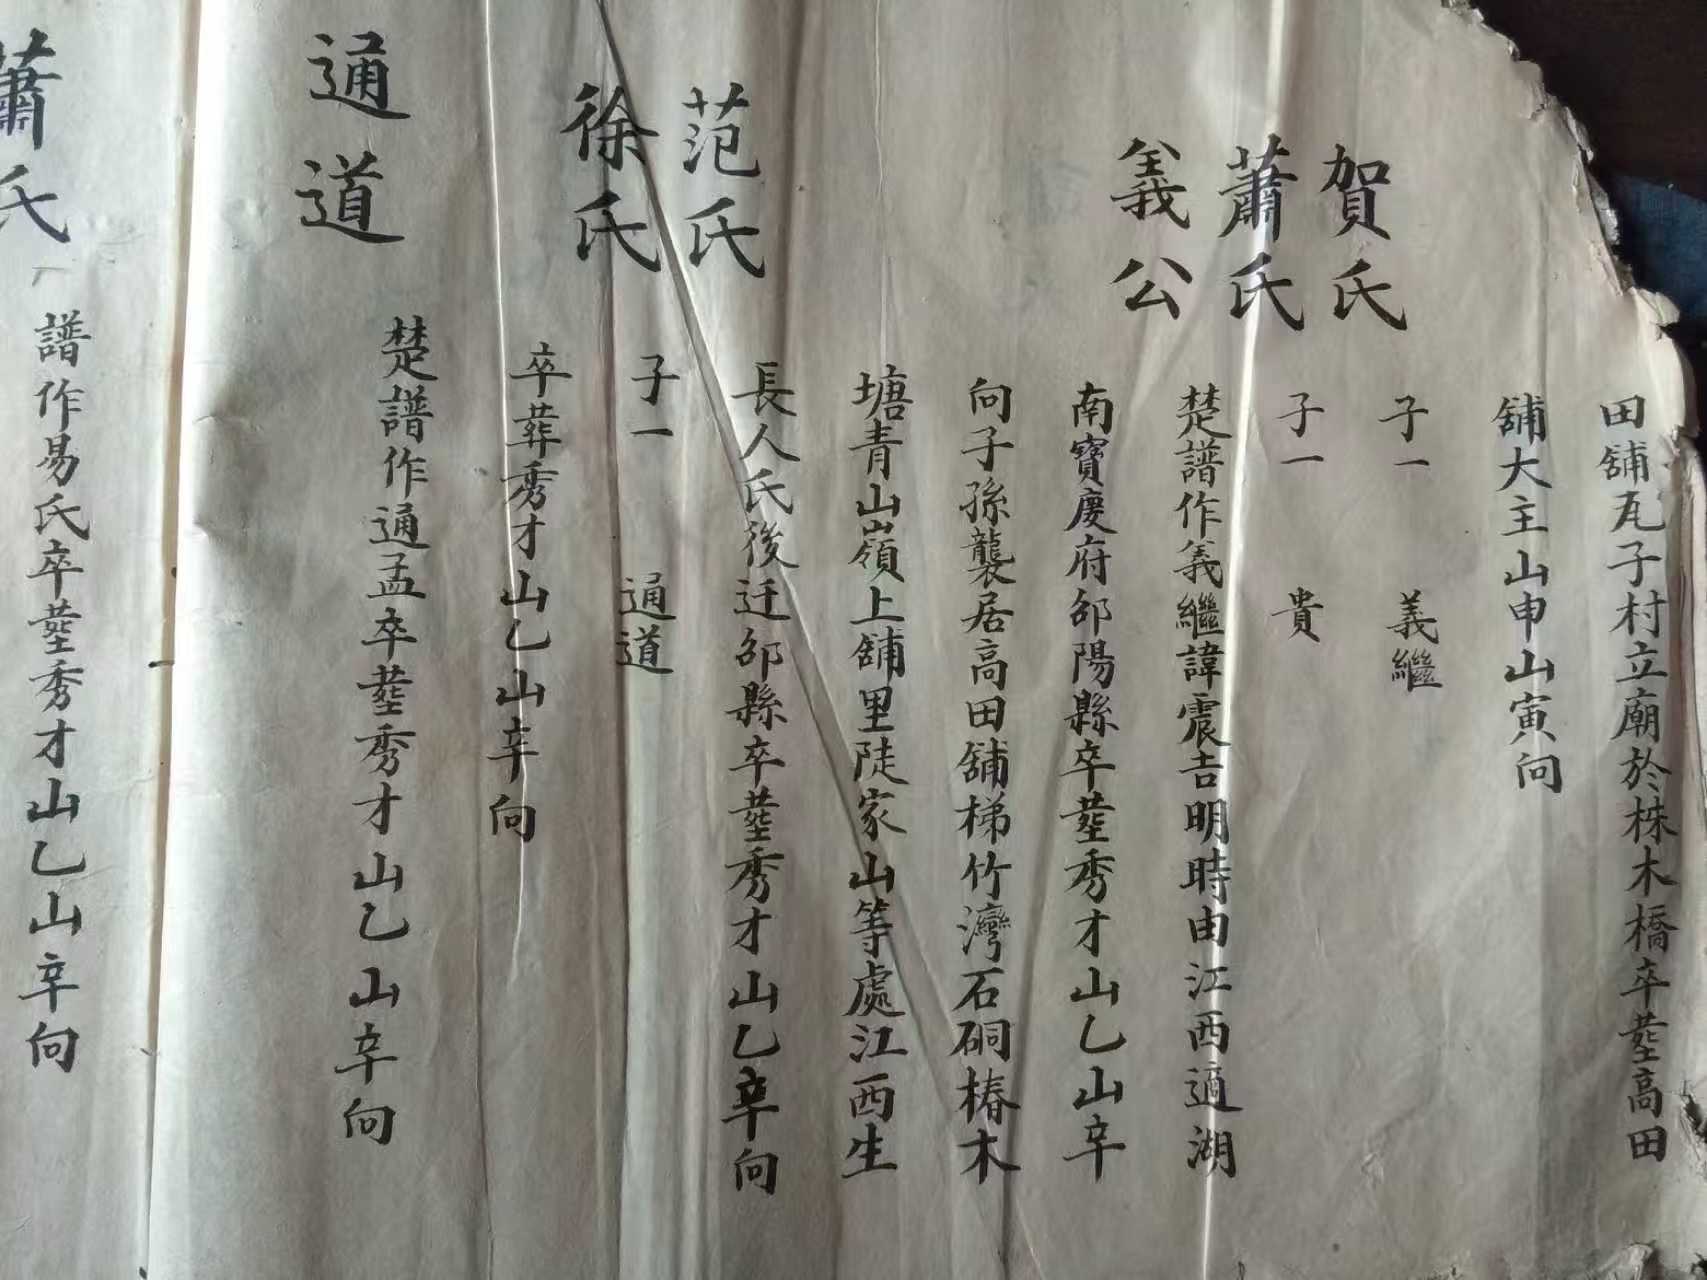 田舖瓦子村立廟於株木橋卒塟高田
舖大主山申山寅向
賀氏
子一　義繼
蕭氏
子一　貴
義公
楚譜作義繼諱震吉明時由江西適湖
南寶慶府邵陽縣卒塟秀才山乙山辛
向子孫襲居高田舖梯竹灣石硐椿木
塘青山嶺上舖里陡家山等處江西生
長人氏後迁邵縣卒塟秀才山乙辛向
范氏
子一　通道
徐氏
卒葬秀才山乙山辛向
通道
楚譜作通孟卒塟秀才山乙山辛向
蕭氏
譜作易氏卒塟秀才山乙山辛向